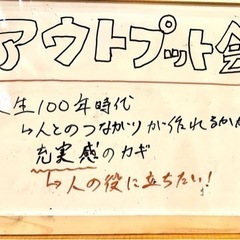 アウトプット会
人生100年時代
↳人とのつながりが作れるかが
充実感のカギ
↳人の役に立ちたい!